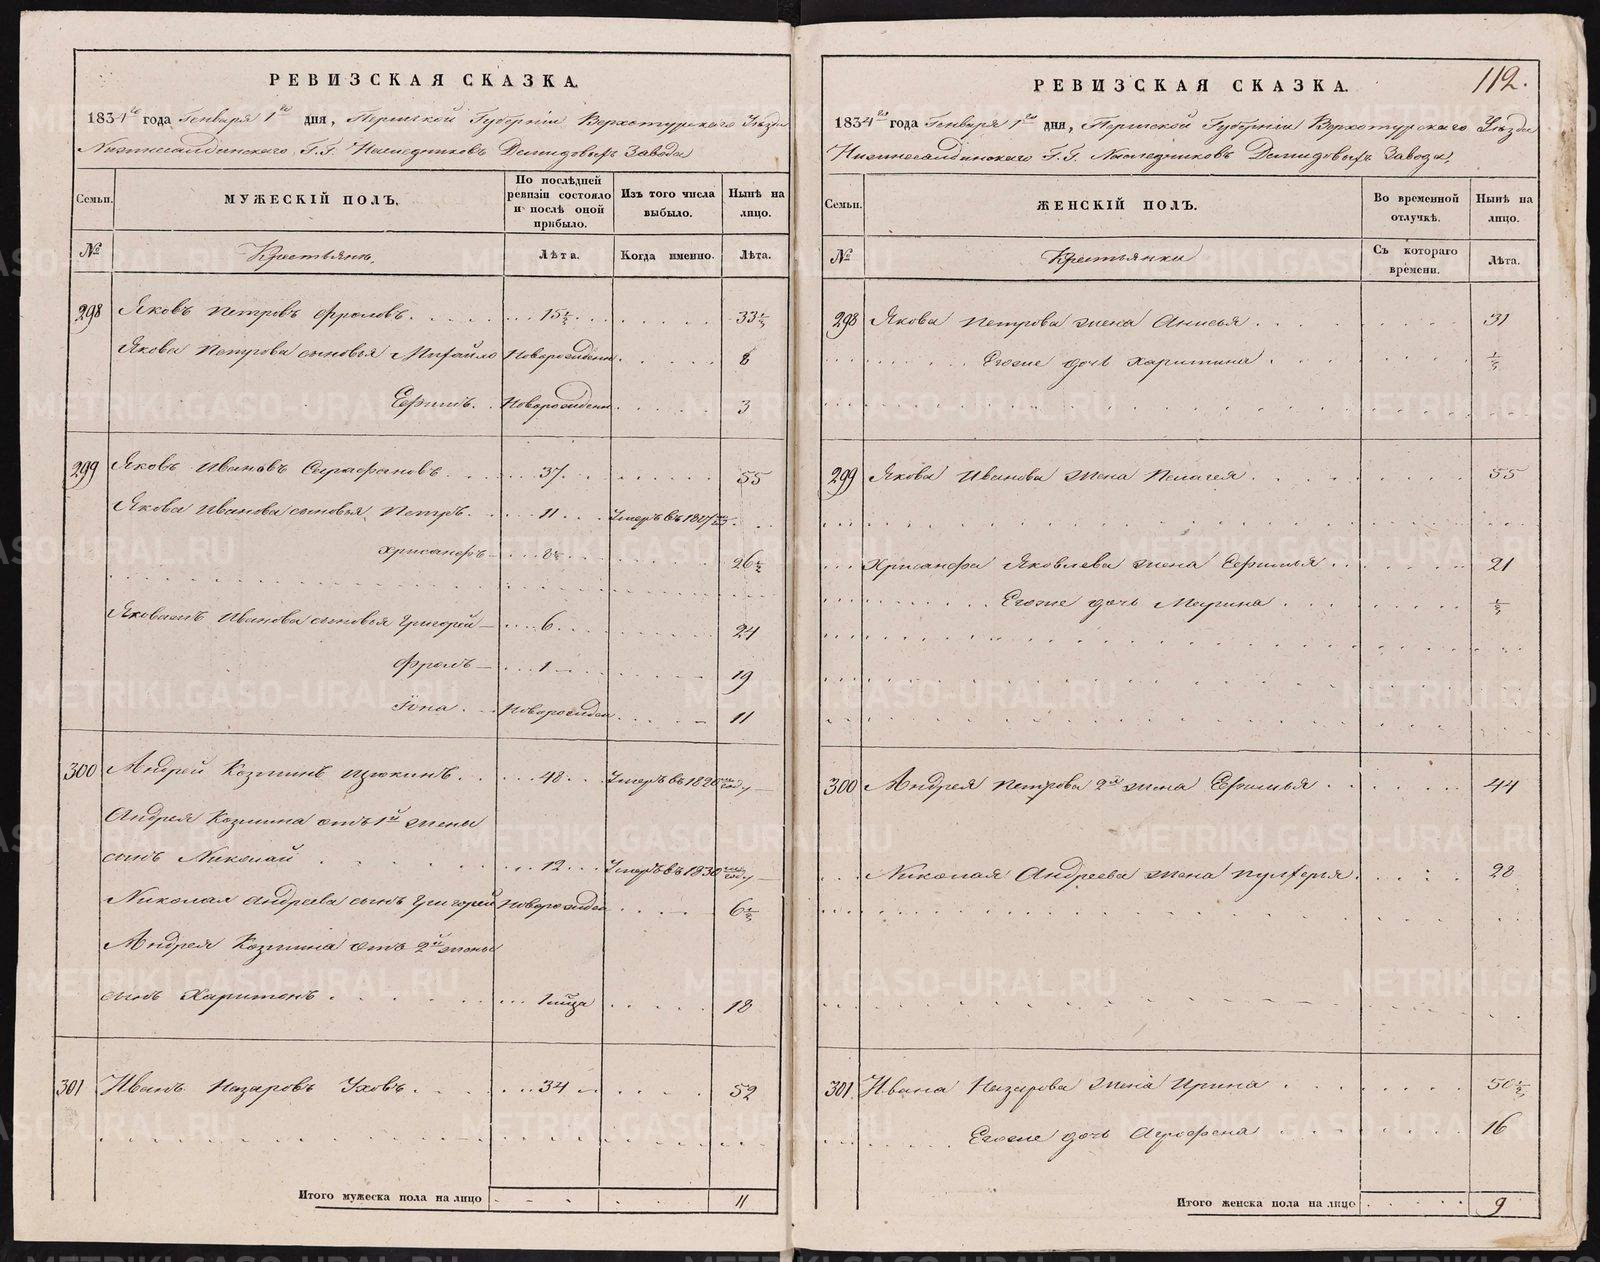 РЕВИЗСКАЯ СКАЗКА.
1834го года Генваря 1го дня, Пермской Губерніи Верхотурскаго Уѣзда
Нижнесалдинскаго Г.Г. Наследниковъ Демидовыхъ Завода
Семьи.
МУЖЕСКІЙ ПОЛЪ.
По послѣдней ревизіи состояло и послѣ оной прибыло.
Изъ того числа выбыло.
Нынѣ на лицо.
№
Крестьяне.
Лѣта.
Когда именно.
Лѣта.
298 Яковъ Петровъ Фроловъ. 15½ 33½
Якова Петрова сыновья Михайло Новорожденн. 8
Ефимъ. Новорожденн. 3
299 Яковъ Ивановъ Серафановъ. 37. 55
Якова Иванова сыновья Петръ. 11 Умеръ въ 1827
Хрисанфъ 8½ 26½
Иванова сыновья Григорей 6. 24
Фролъ 1 19
Іона. Новорожден. 11
300 Андрей Козминъ 48 Умеръ въ 1826 году
Андрея Козмина отъ 1й жены
сынъ Николай 12 Умеръ въ 1830 году
Николая Андреева сынъ Григорей Новорожден 6½
Андрея Козмина отъ 2й жены
сынъ Харитонъ. 1 мѣца 18
301 Иванъ Назаровъ Уховъ. 34 52
Итого мужеска пола на лицо 11
112.
РЕВИЗСКАЯ СКАЗКА.
1834го года Генваря 1го дня, Пермской Губерніи Верхотурскаго Уѣзда
Нижнесалдинскаго Г.Г. Наследниковъ Демидовыхъ Завода.
Семьи.
ЖЕНСКІЙ ПОЛЪ.
Во временной отлучкѣ.
Нынѣ на лицо.
№
Крестьянки
Съ котораго времени.
Лѣта.
298 Якова Петрова жена Анисья. 31
Егоже дочь Харитина. ½
299 Якова Иванова жена Пелагея. 55
Хрисанфа Яковлева жена Ефимья. 21
Егоже дочь Марина. ½
300 Андрея Петрова 2я жена Ефимья. 44
Николая Андреева жена Пулхерья. 28
301 Ивана Назарова жена Ирина. 50½
Егоже дочь Агрофена. 16
Итого женска пола на лицо 9
METRIKI.GASO-URAL.RU